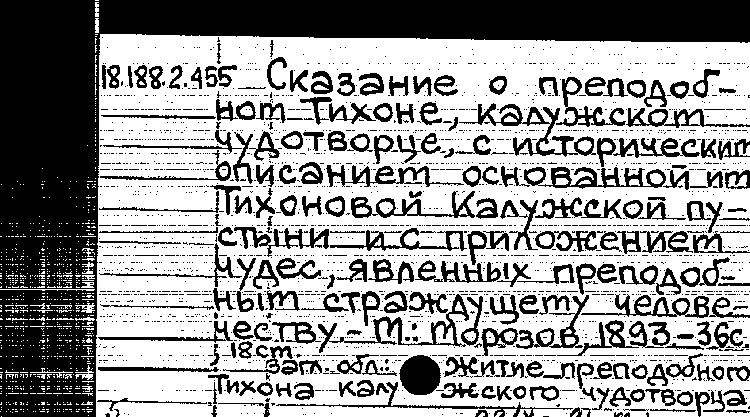 18.188.2.455 Сказание о преподоб-
ном Тихоне, калужском
чудотворце, с историческим
описанием основанной им
Тихоновой Калужской пу-
стыни и с приложением
чудес, явленных преподоб-
ным страждущему челове-
честву.- М.: Морозов, 1893.-36с.
18см.
Загл. обл.: Житие преподобного
Тихона калужского чудотворца